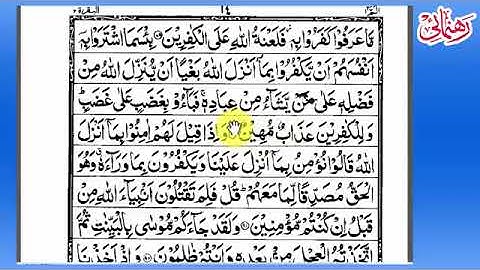 البقرة ٢
١٤
رهنمائی
مَّا عَرَفُوْا كَفَرُوْا بِهٖ فَلَعْنَةُ اللّٰهِ عَلَى الْكٰفِرِیْنَ ۝ بِئْسَمَا اشْتَرَوْا بِهٖۤ
اَنْفُسَهُمْ اَنْ یَّكْفُرُوْا بِمَاۤ اَنْزَلَ اللّٰهُ بَغْیًا اَنْ یُّنَزِّلَ اللّٰهُ مِنْ
فَضْلِهٖ عَلٰى مَنْ یَّشَآءُ مِنْ عِبَادِهٖ ۚ فَبَآءُوْ بِغَضَبٍ عَلٰى غَضَبٍ ؕ
وَ لِلْكٰفِرِیْنَ عَذَابٌ مُّهِیْنٌ ۝ وَ اِذَا قِیْلَ لَهُمْ اٰمِنُوْا بِمَاۤ اَنْزَلَ
اللّٰهُ قَالُوْا نُؤْمِنُ بِمَاۤ اُنْزِلَ عَلَیْنَا وَ یَكْفُرُوْنَ بِمَا وَرَآءَهٗ ۗ وَ هُوَ
الْحَقُّ مُصَدِّقًا لِّمَا مَعَهُمْ ؕ قُلْ فَلِمَ تَقْتُلُوْنَ اَنْۢبِیَآءَ اللّٰهِ مِنْ
قَبْلُ اِنْ كُنْتُمْ مُّؤْمِنِیْنَ ۝ وَ لَقَدْ جَآءَكُمْ مُّوْسٰى بِالْبَیِّنٰتِ ثُمَّ
اتَّخَذْتُمُ الْعِجْلَ مِنْۢ بَعْدِهٖ وَ اَنْتُمْ ظٰلِمُوْنَ ۝ وَ اِذْ اَخَذْنَا